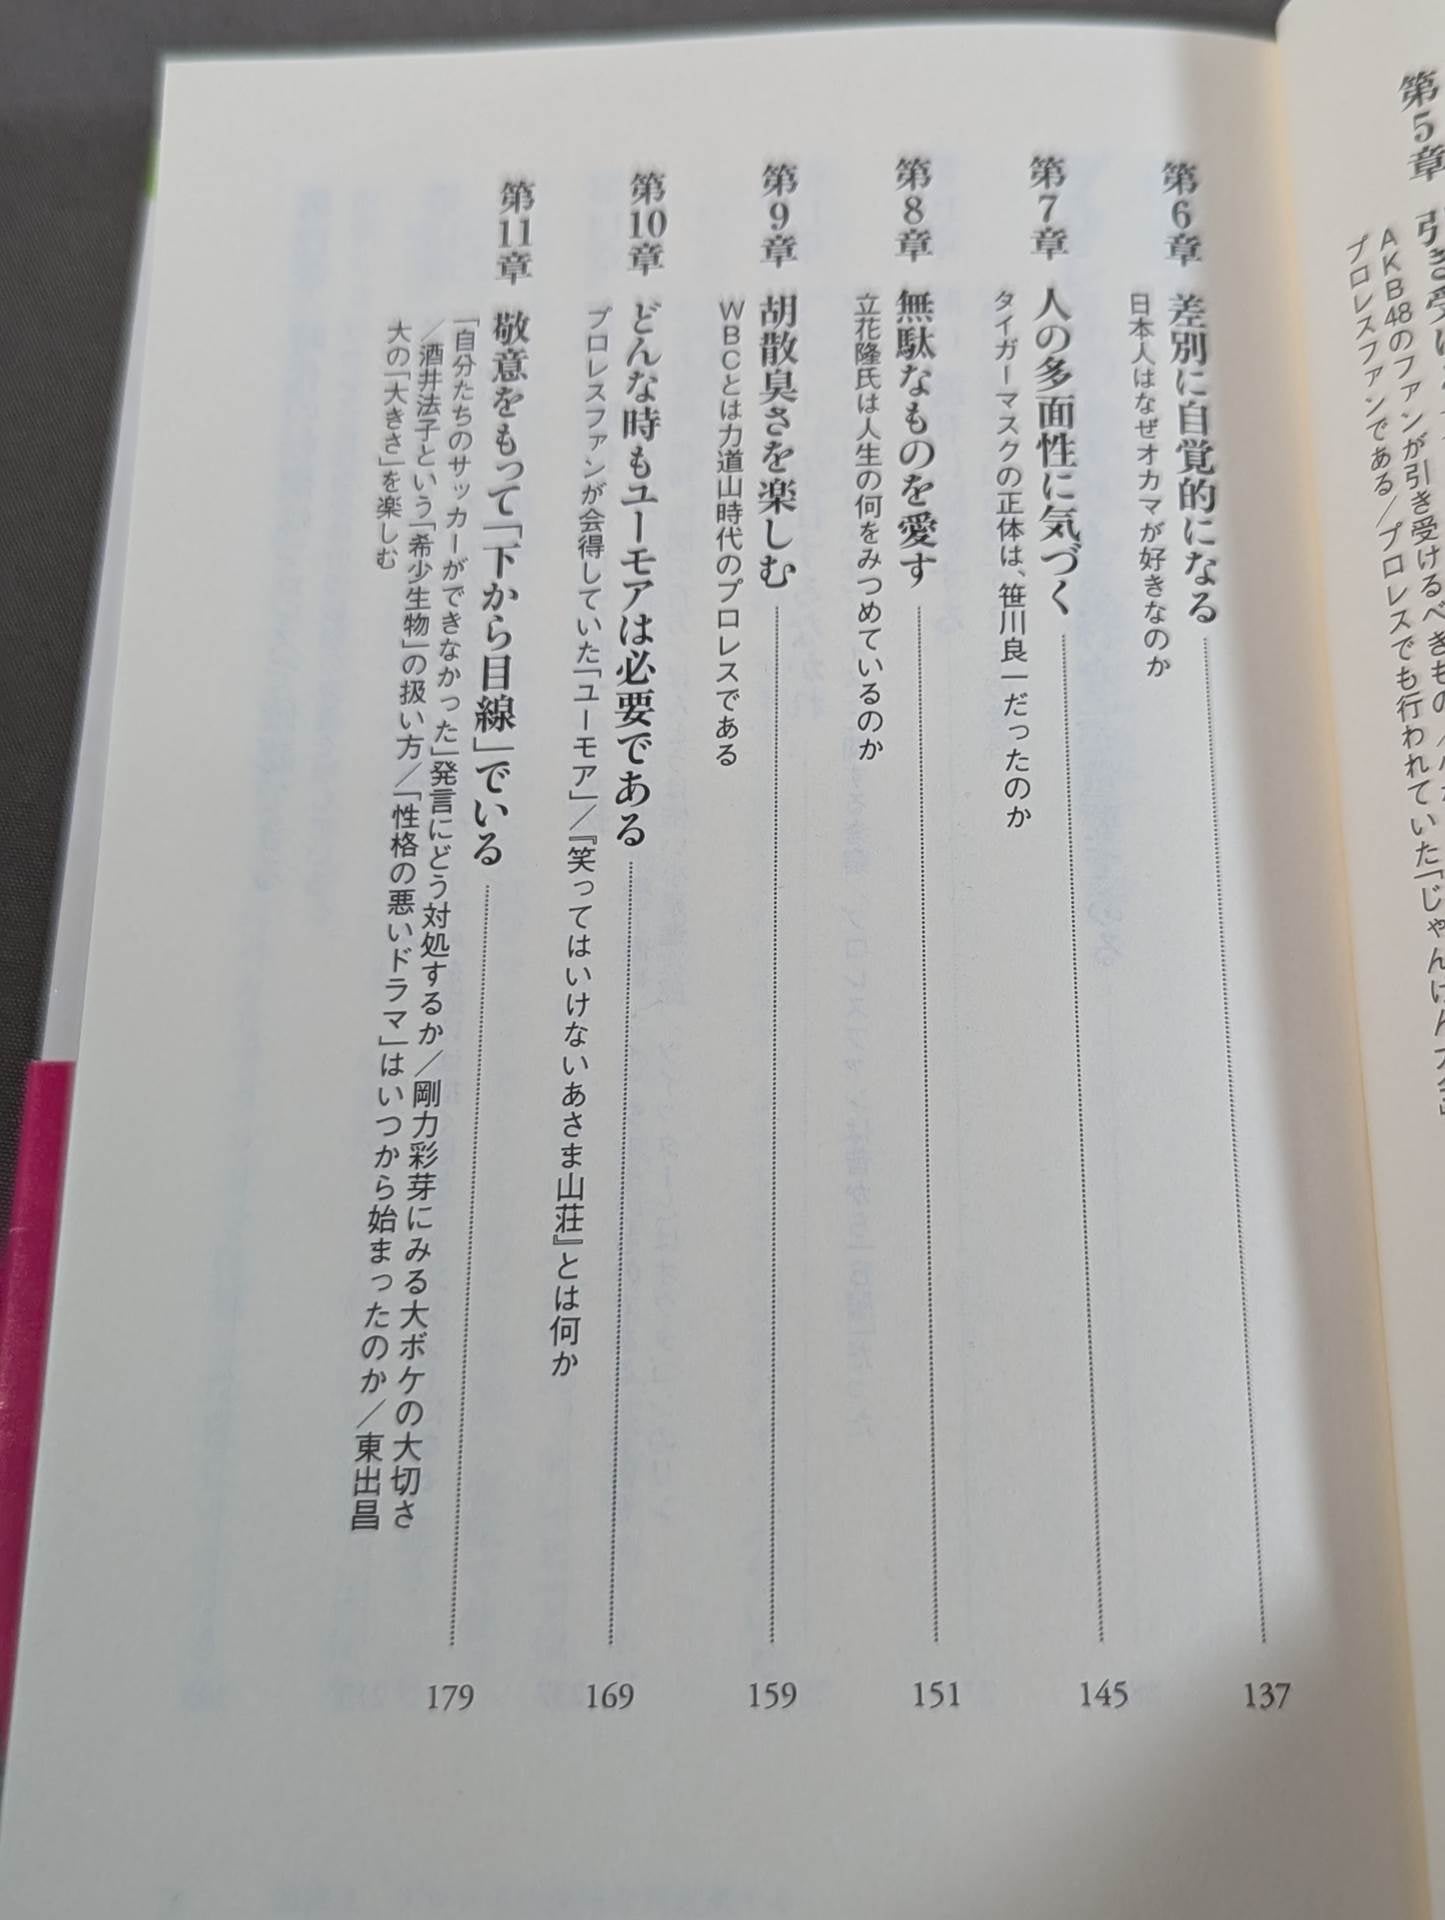 第5章
AKB48のファンが引き受けるべきもの
プロレスファンである／プロレスでも行われていた「じゃんけん大会」
第6章 差別に自覚的になる 137
日本人はなぜオカマが好きなのか
第7章 人の多面性に気づく 145
タイガーマスクの正体は、笹川良一だったのか
第8章 無駄なものを愛す 151
立花隆氏は人生の何をみつめているのか
第9章 胡散臭さを楽しむ 159
WBCとは力道山時代のプロレスである
第10章 どんな時もユーモアは必要である 169
プロレスファンが会得していた「ユーモア」／『笑ってはいけないあさま山荘』とは何か
第11章 敬意をもって「下から目線」でいる 179
「自分たちのサッカーができなかった」発言にどう対処するか／剛力彩芽にみる大ボケの大切さ
／酒井法子という「希少生物」の扱い方／「性格の悪いドラマ」はいつから始まったのか／東出昌
大の「大きさ」を楽しむ